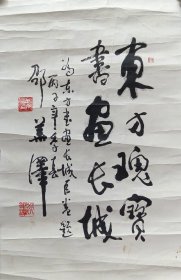 東方瑰寶
書畫長城
為東方書畫長城長卷題
丙子年春
邵華澤